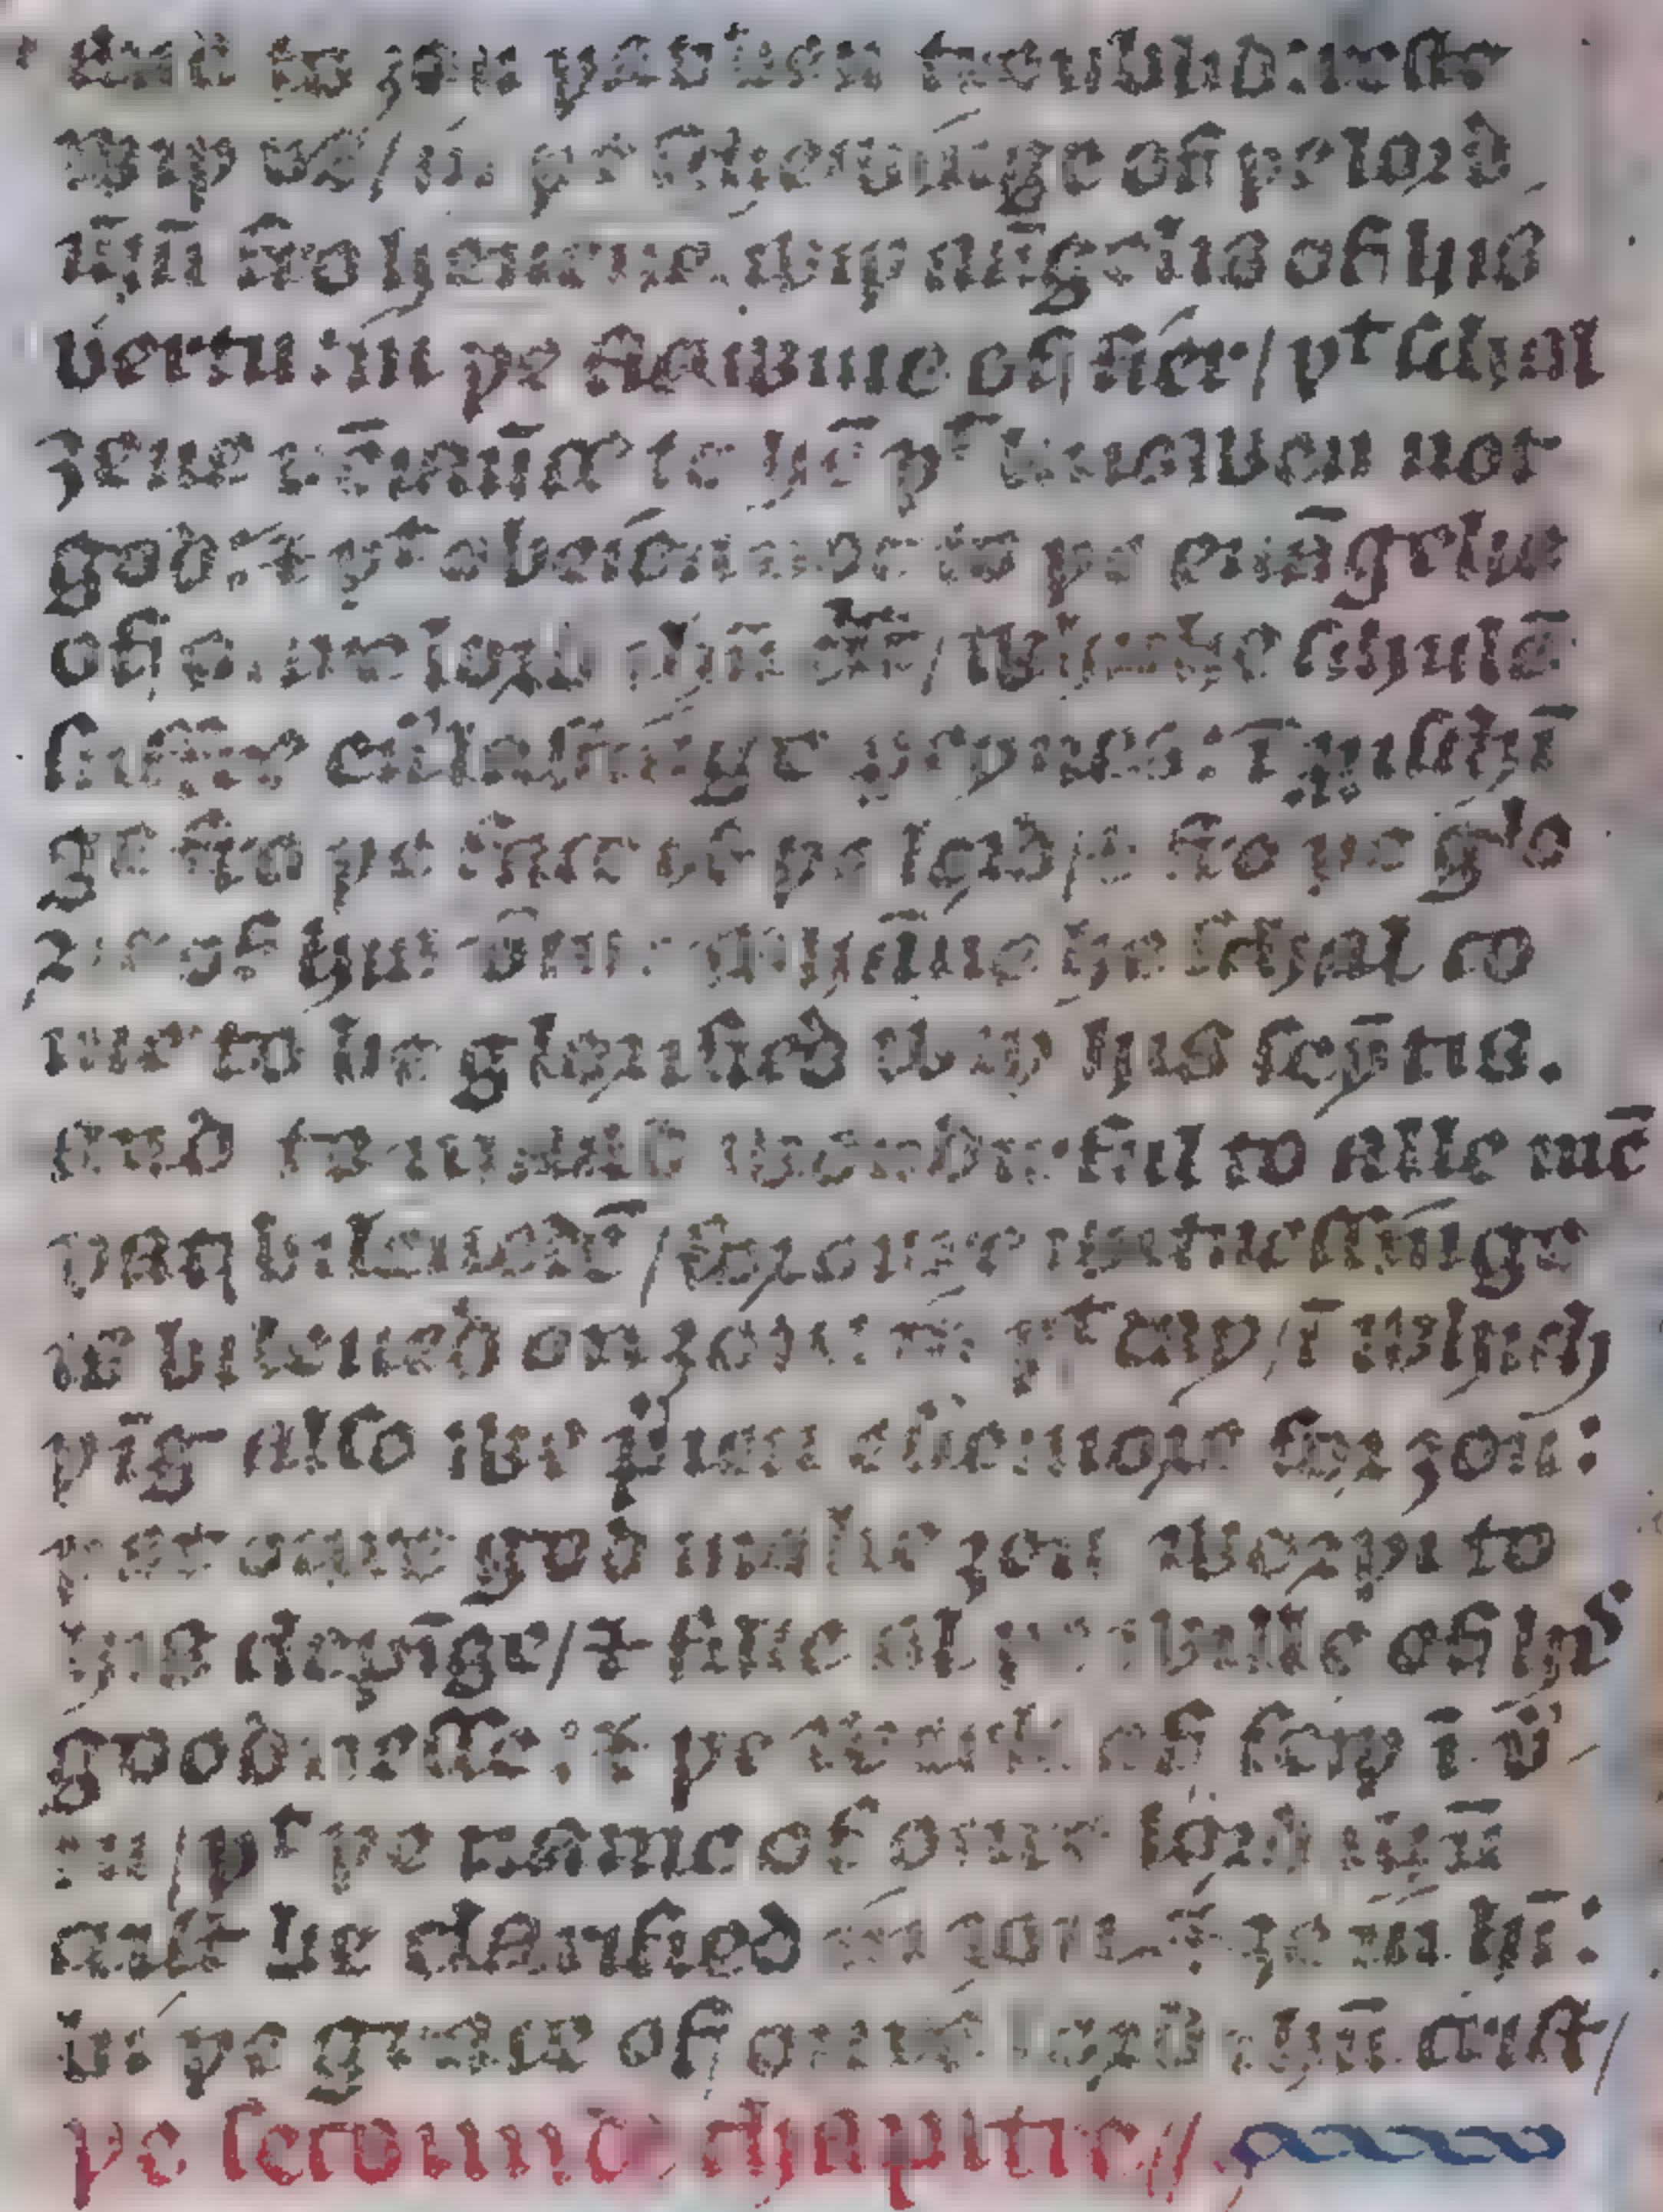 and to ȝou þat ben troublid: reste
wiþ us / in þe schewynge of þe lord
ihū fro heuene. wiþ aūgelis of his
vertu: in þe flawme of fier / þᵗ schal
ȝeue vēiaūce to hē þᵗ knowen not
god: ⁊ þᵗ obeien not to þe euāgelie
of oure lord ihū crist / whiche schulē
suffre euerlastinge peynes: ī pischī
ge fro þe face of þe lord / ⁊ fro þe glo
rie of his vertu: whāne he schal co
me to be glorified wiþ his seyntis.
and to maad wondurful to alle mē
þat bileueden / for oure witnessinge
is bileued on ȝou: in þᵗ day / ī which
þīg also we preien euermore for ȝou:
þat oure god make ȝou worþi to
his clepīge / ⁊ fille al þe wille of his
goodnesse: ⁊ þe werk of feiþ ī v̾
tu / þᵗ þe name of oure lord ihū
crist be clarified in ȝou. ⁊ ȝe in hī:
bi þe grace of oure lord ihū crist /
þe secounde chapitre //